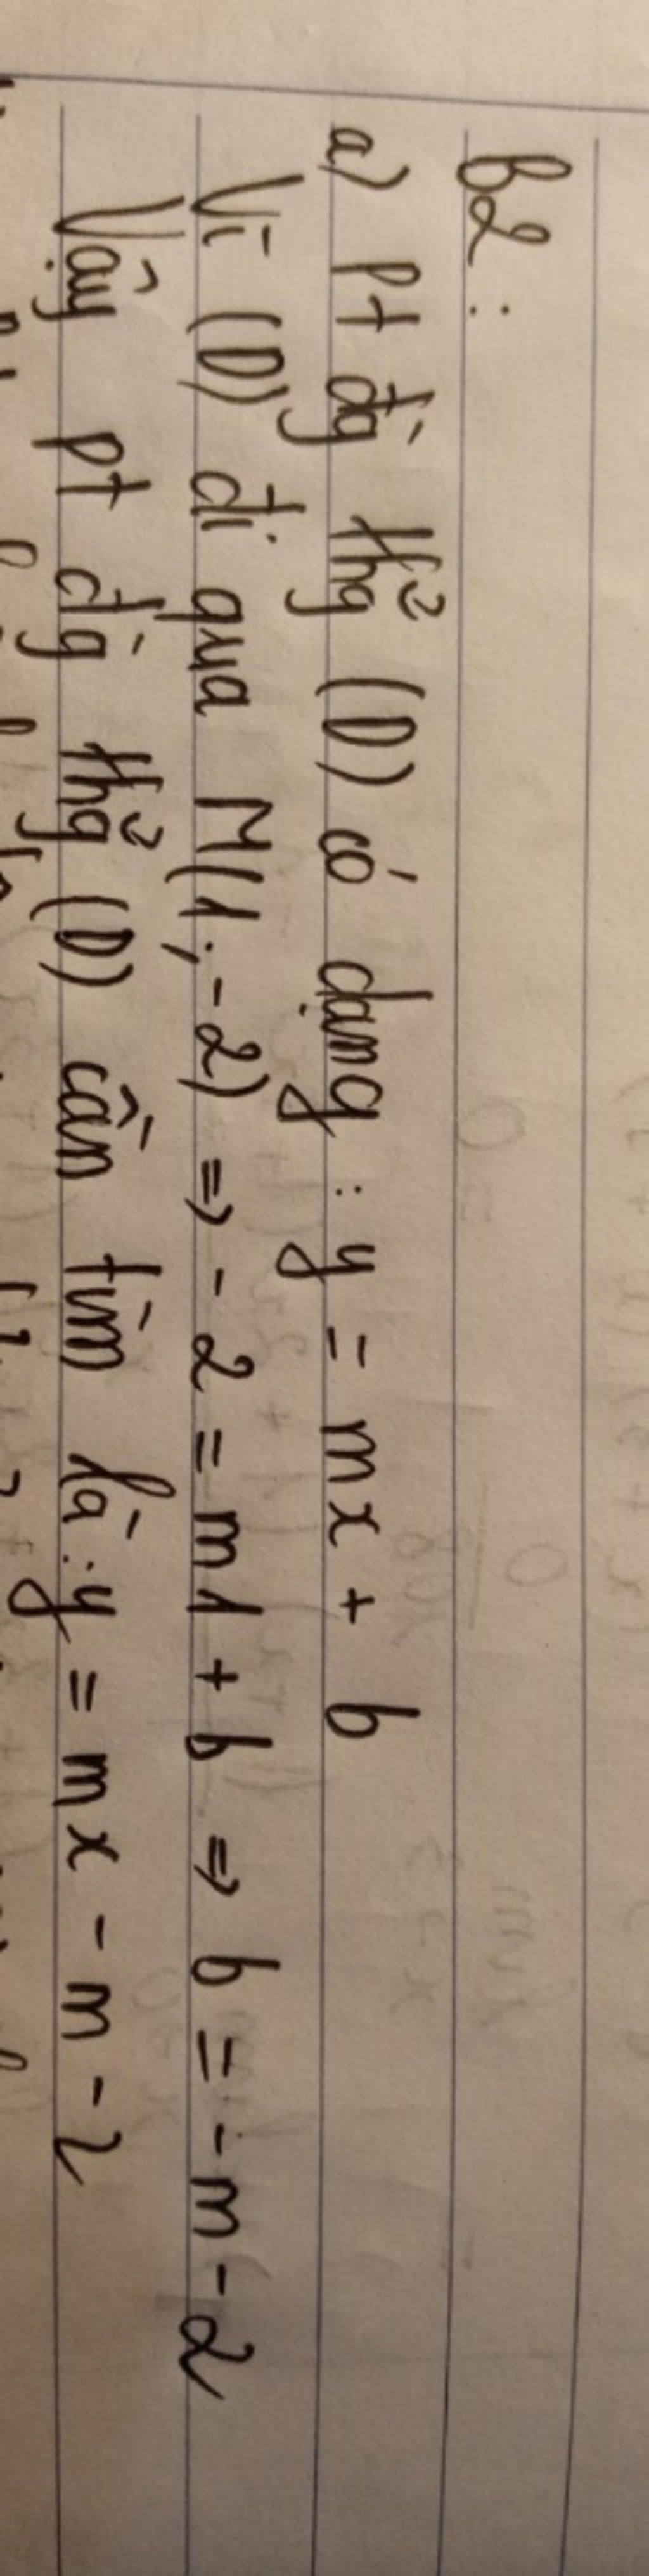 B2:
a) Pt đg̀ thg̉ (D) có dạng : y = mx + b
Vì (D) đi qua M(1;-2) => -2 = m1 + b => b = -m-2
Vậy pt đg̀ thg̉ (D) cần tìm là : y = mx - m - 2